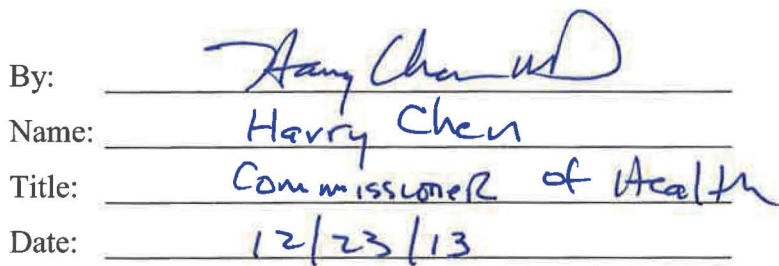 By: Harry Chen MD
Name: Harry Chen
Title: Commissioner of Health
Date: 12/23/13